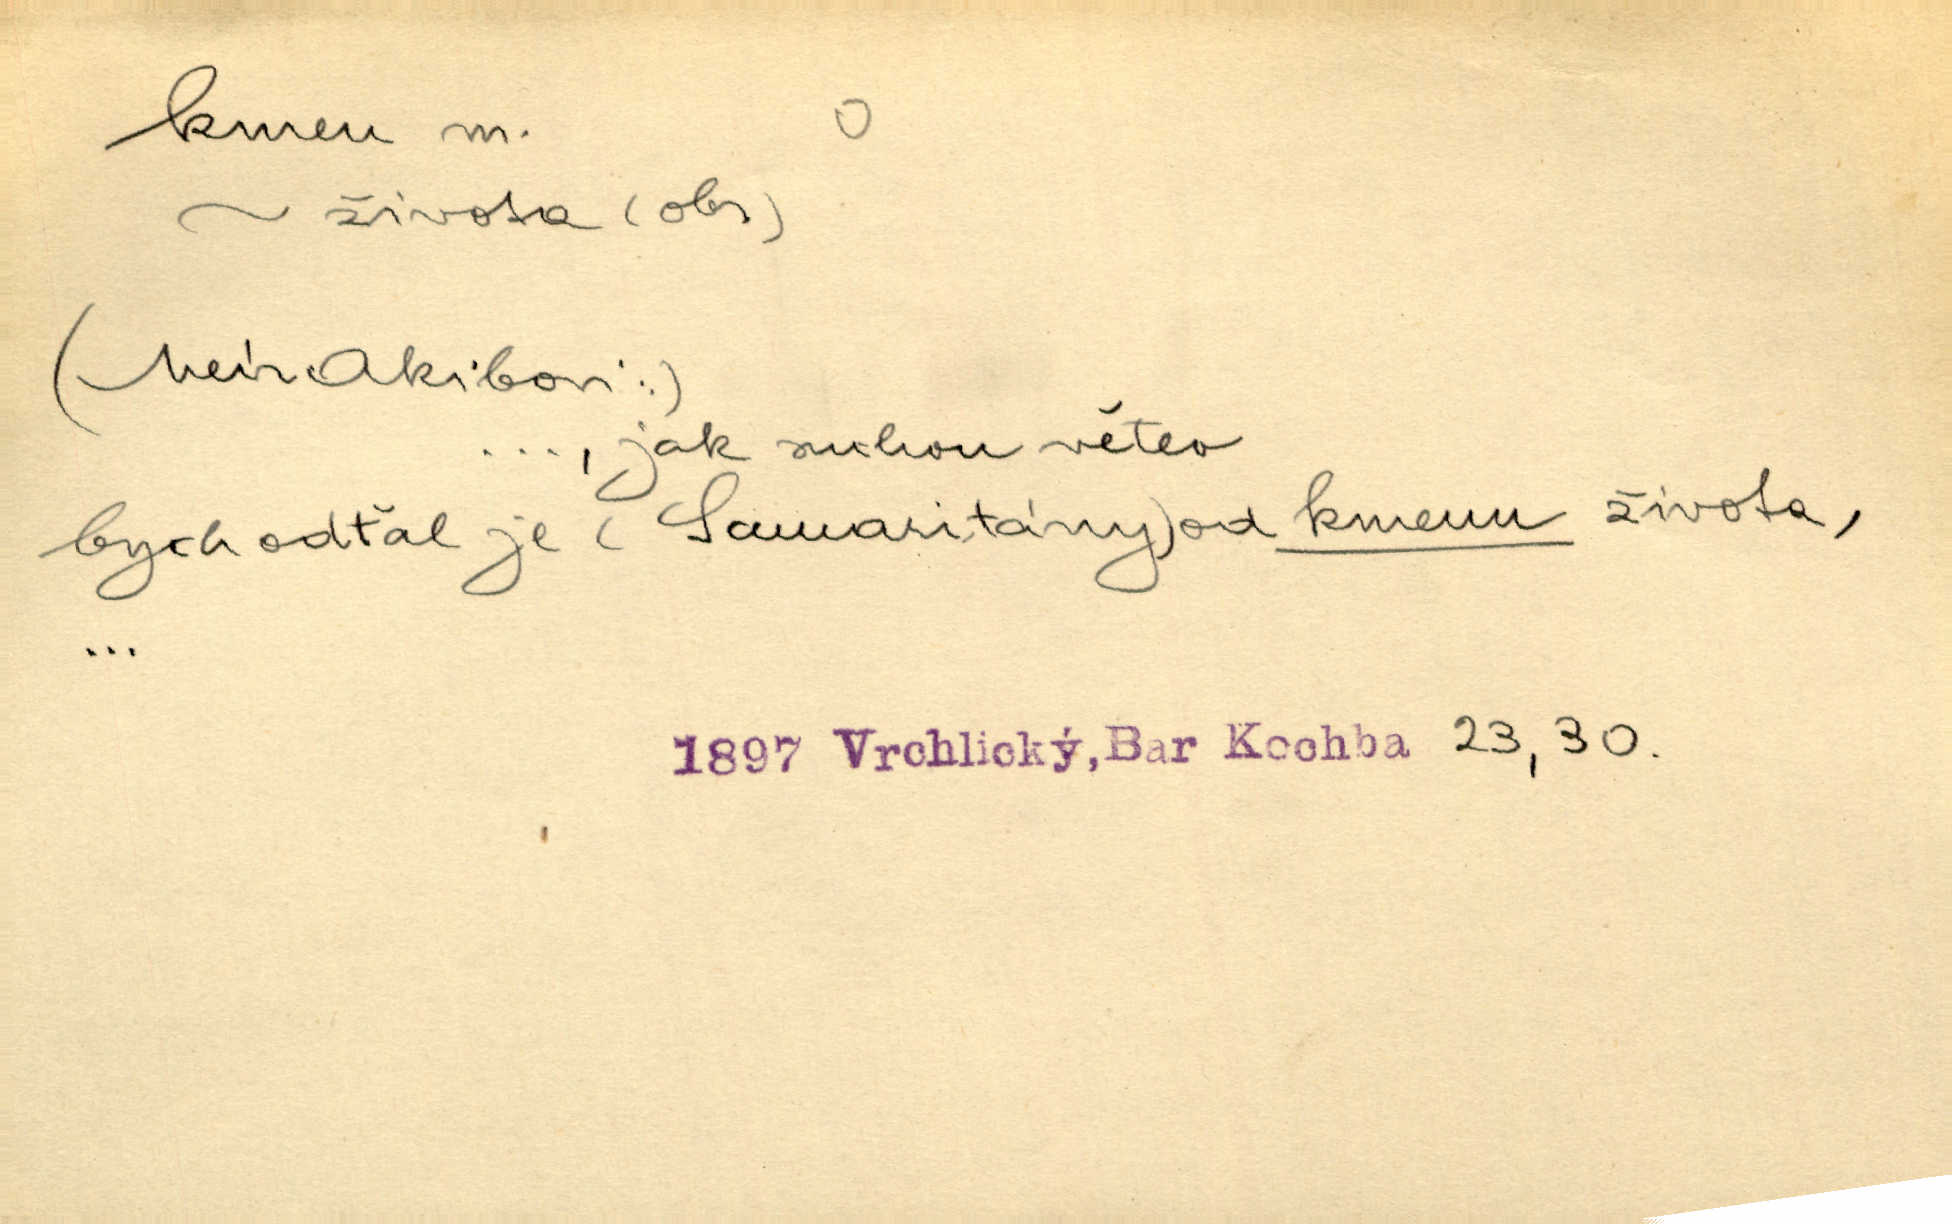 kmen m. O
~ života (obr.)
(Meir Akibovi:)
..., jak suchou větev
bych odťal je (Samaritány) od kmenu života,
...
1897 Vrchlický, Bar Kochba 23, 30.